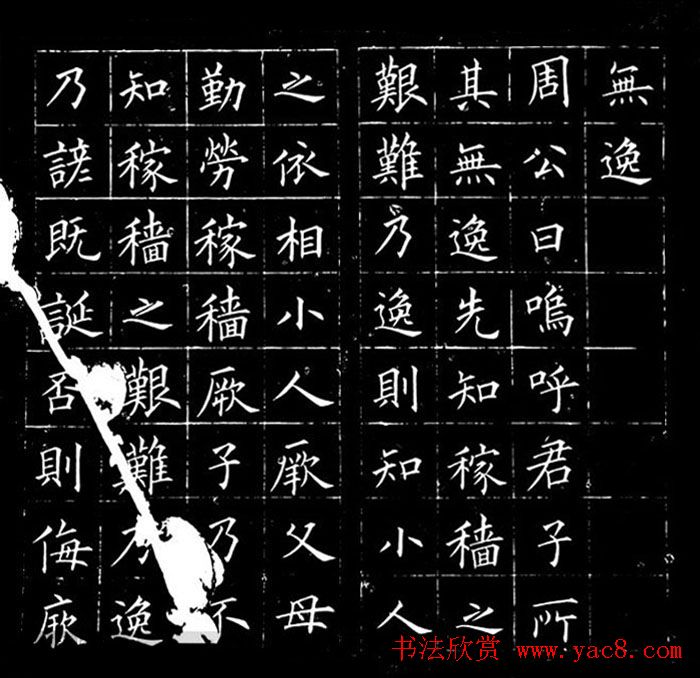 無逸
周公曰嗚呼君子所
其無逸先知稼穡之
艱難乃逸則知小人
之依相小人厥父母
勤勞稼穡厥子乃不
知稼穡之艱難乃逸
乃諺既誕否則侮厥
书法欣赏 www.yac8.com